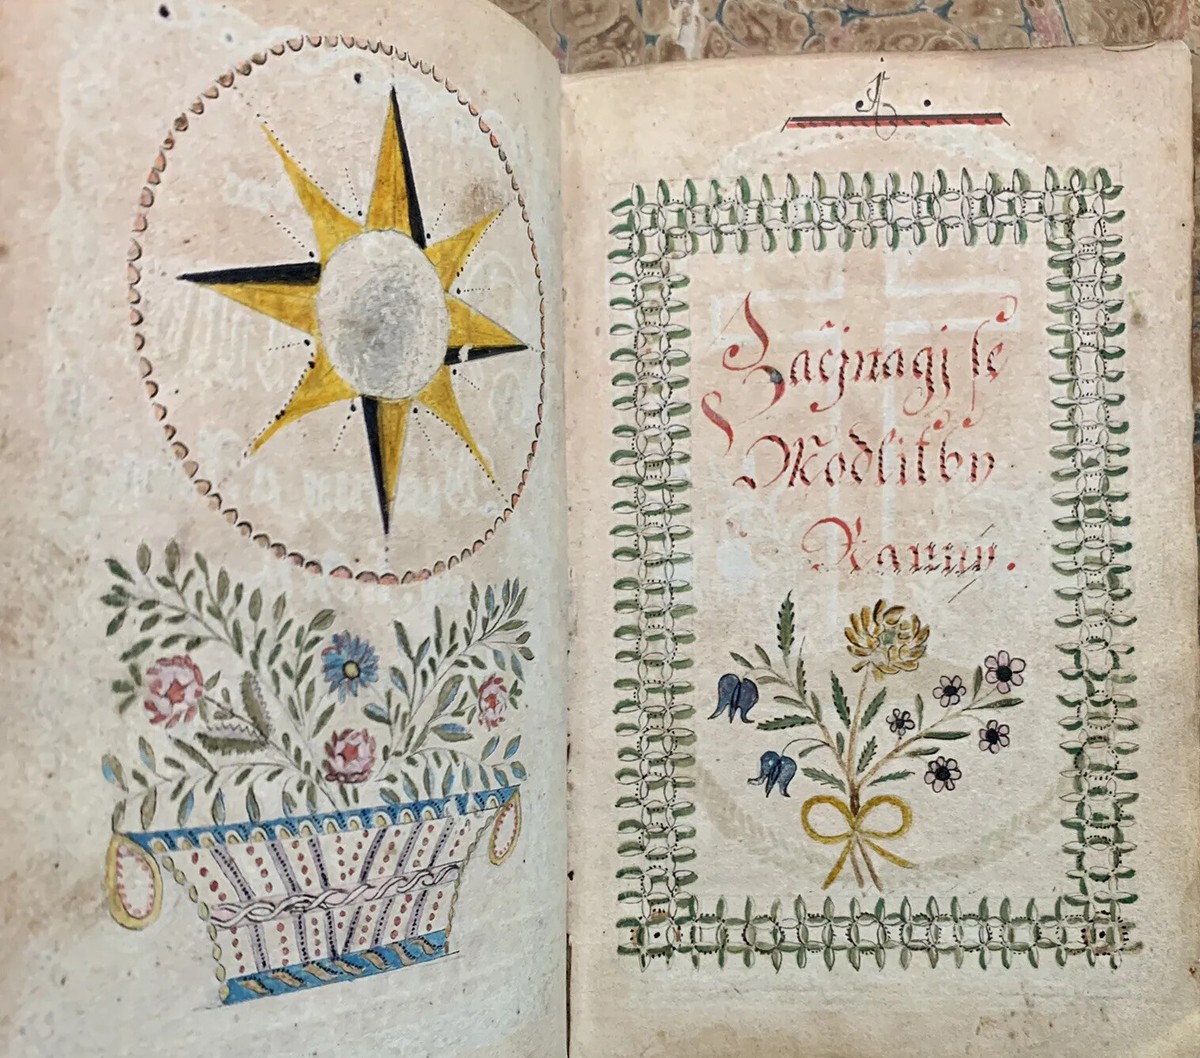 Začjnagj ſe
Modlitby
Rannj.